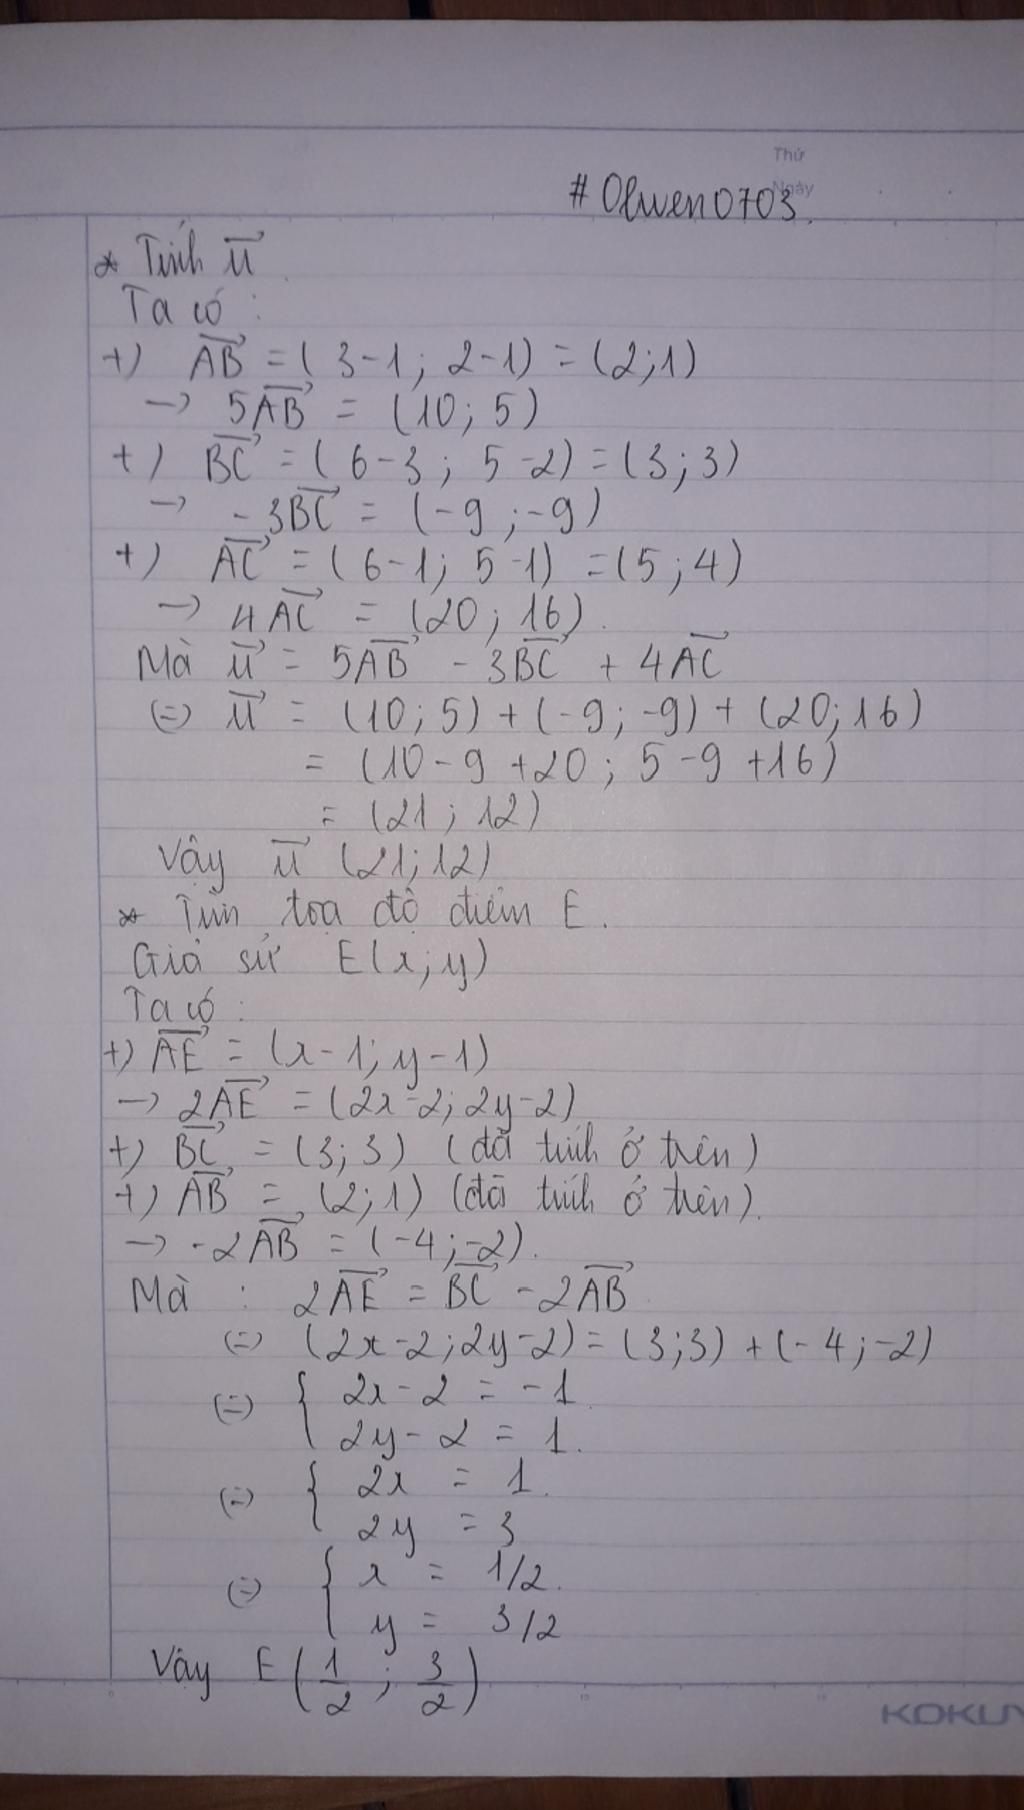 Thứ
Ngày
#Olwen0703.
* Tính u⃗.
Ta có :
+) AB⃗ = ( 3-1 ; 2-1) = (2;1)
→ 5AB⃗ = (10; 5)
+) BC⃗ = ( 6-3 ; 5-2) = (3;3)
→ -3BC⃗ = (-9 ;-9)
+) AC⃗ = ( 6-1; 5-1) = (5;4)
→ 4AC⃗ = (20; 16).
Mà u⃗ = 5AB⃗ - 3BC⃗ + 4AC⃗
(=) u⃗ = (10; 5) + (-9; -9) + (20; 16)
= (10 - 9 +20 ; 5 -9 +16)
= (21; 12)
Vậy u⃗ (21; 12)
* Tìm toạ độ điểm E.
Giả sử E(x;y)
Ta có :
+) AE⃗ = (x-1; y-1)
→ 2AE⃗ = (2x-2; 2y-2)
+) BC⃗ = (3; 3) (đã tính ở trên)
+) AB⃗ = (2; 1) (đã tính ở trên).
→ -2AB⃗ = (-4 ;-2).
Mà : 2AE⃗ = BC⃗ - 2AB⃗
(=) (2x-2; 2y-2) = (3;3) + (-4;-2)
(=) { 2x-2 = -1
2y-2 = 1.
(=) { 2x = 1.
2y = 3
(=) { x = 1/2.
y = 3/2
Vậy E (1/2 ; 3/2)